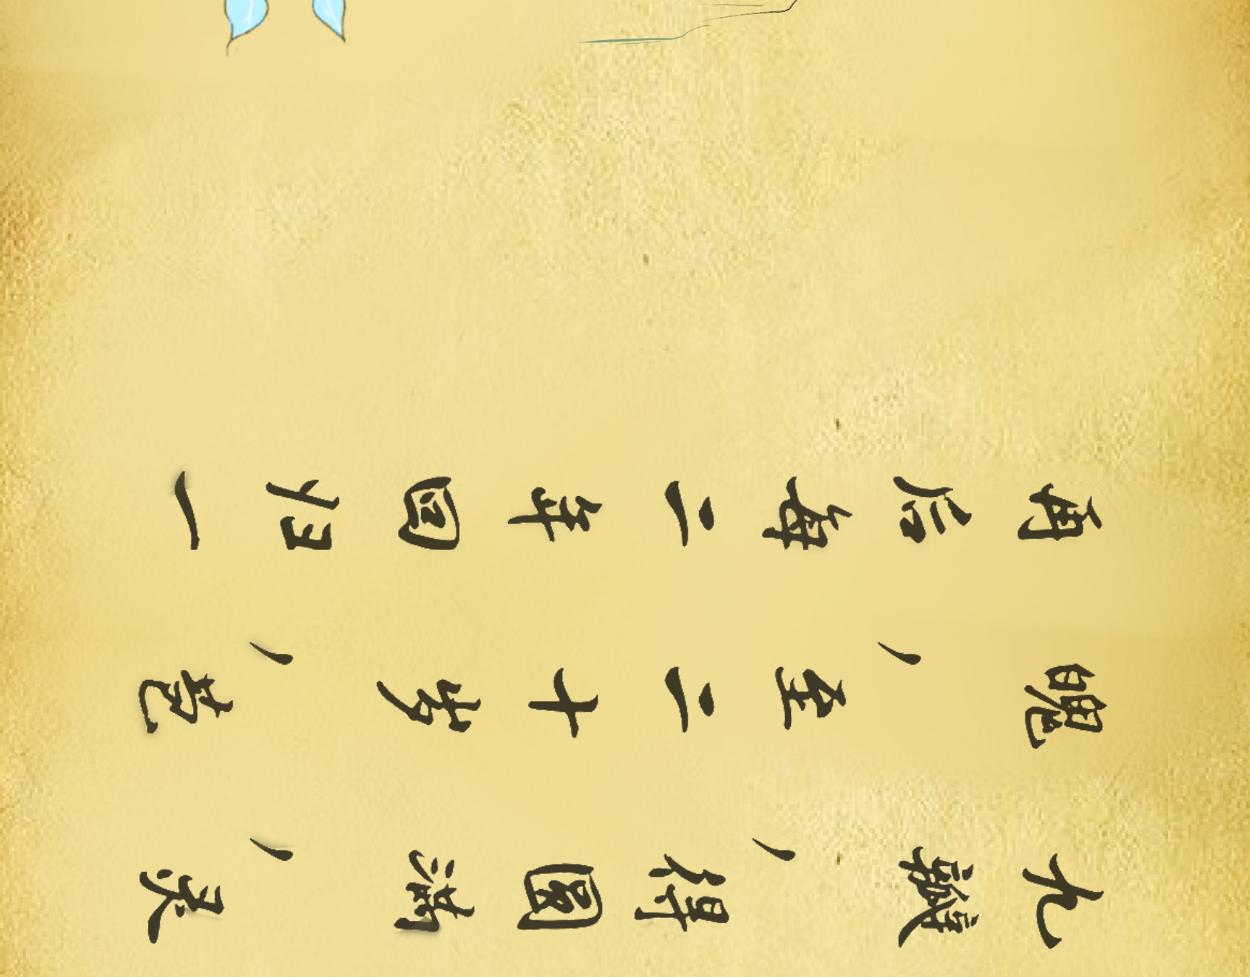 角后每二年回归一
魄，至二十岁，
九，得圆满，灵